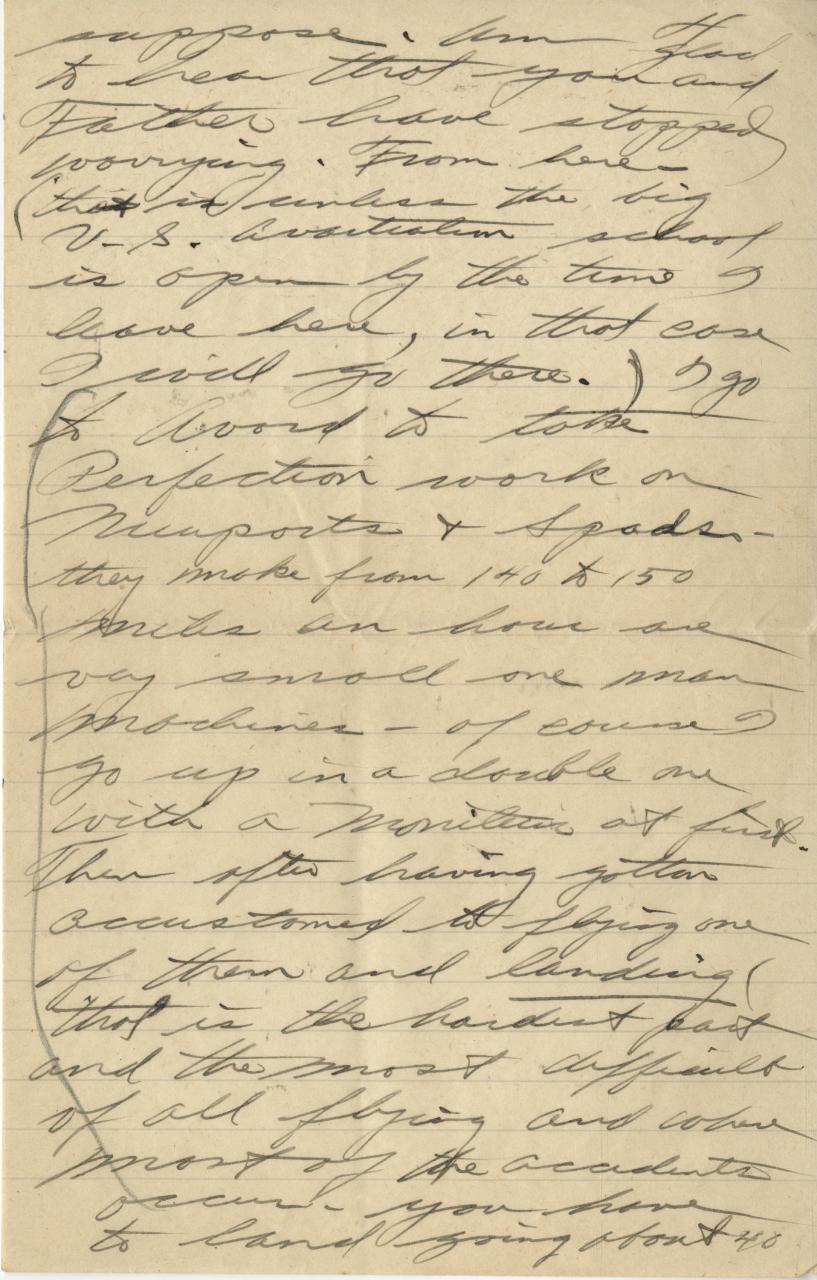 suppose. Am Glad
to hear that you and
Father have stopped
worrying. From here-
(that is unless the big
U-S. aviation school
is open by the time I
leave here, in that case
I will go there.) I go
to Avord to take
Perfection work on
Nieuports & Spads.-
they make from 140 to 150
miles an hour are
very small one man
machines - of course I
go up in a double one
with a moniteur at first.
Then after having gotten
accustomed to flying one
of them and landing (
that is the hardest part
and the most difficult
of all flying and where
most of the accidents
occur - you have
to land going about 40